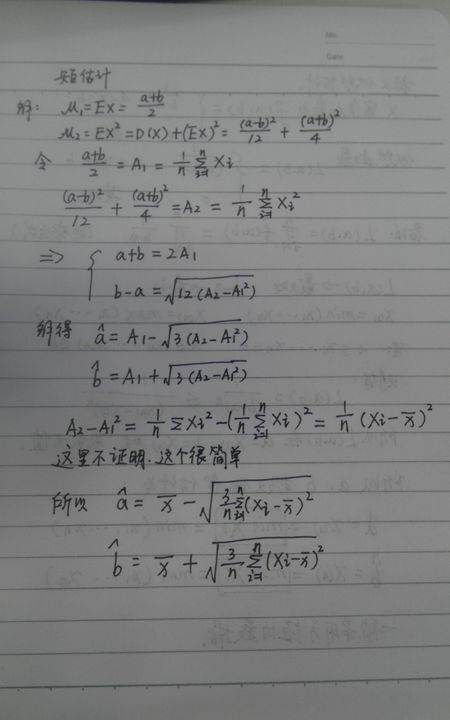 No:
Date
矩估计
解: μ₁=EX= (a+b)/2
μ₂=EX²=D(X)+(EX)²= (a-b)²/12 + (a+b)²/4
令 (a+b)/2 = A₁ = 1/n Σᵢ₌₁ⁿ Xᵢ
(a-b)²/12 + (a+b)²/4 =A₂ = 1/n Σᵢ₌₁ⁿ Xᵢ²
⇒ { a+b = 2A₁
b-a = √(12(A₂-A₁²))
解得 â= A₁-√(3(A₂-A₁²))
b̂ = A₁+√(3(A₂-A₁²))
A₂-A₁² = 1/n ΣXᵢ² -(1/n Σᵢ₌₁ⁿ Xᵢ)² = 1/n (Xᵢ-x̄)²
这里不证明.这个很简单
所以 â = x̄ - √(3/n Σᵢ₌₁ⁿ(Xᵢ-x̄)²)
b̂ = x̄ + √(3/n Σᵢ₌₁ⁿ(Xᵢ-x̄)²)